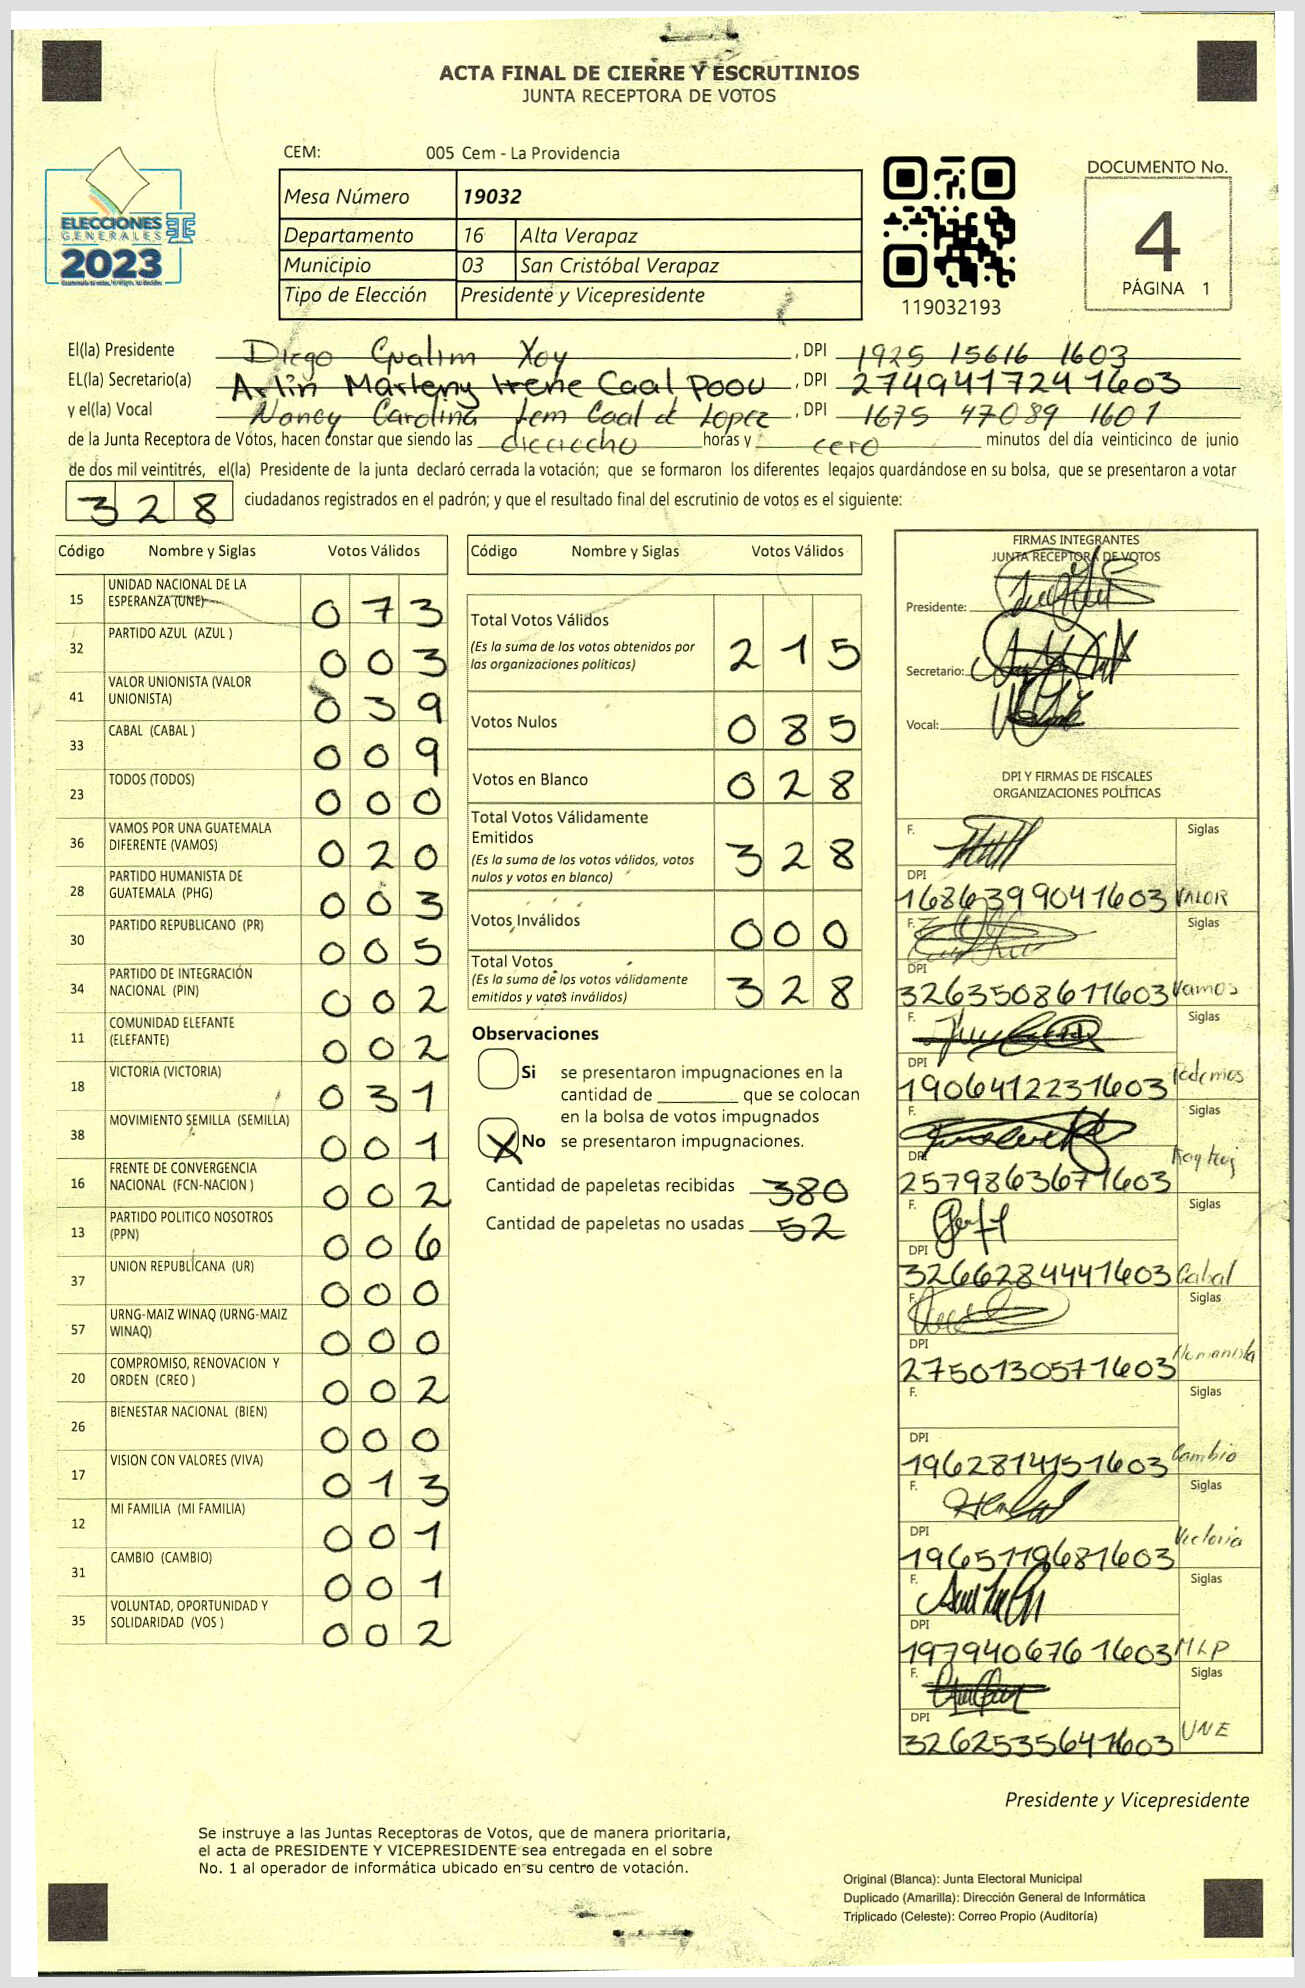 ACTA FINAL DE CIERRE Y ESCRUTINIOS
JUNTA RECEPTORA DE VOTOS
CEM: 005 Cem - La Providencia
Mesa Número 19032
Departamento 16 Alta Verapaz
Municipio 03 San Cristóbal Verapaz
Tipo de Elección Presidente y Vicepresidente
ELECCIONES
GENERALES
2023
119032193
DOCUMENTO No.
4
PÁGINA 1
El(la) Presidente Diego Gualim Xoy, DPI 1925 15616 1603
EL(la) Secretario(a) Arlin Marleny Irene Caal Poou, DPI 2749417241603
y el(la) Vocal Nancy Carolina Lem Caal de Lopez, DPI 1675 47089 1601
de la Junta Receptora de Votos, hacen constar que siendo las dieciocho horas y cero minutos del día veinticinco de junio
de dos mil veintitrés, el(la) Presidente de la junta declaró cerrada la votación; que se formaron los diferentes legajos guardándose en su bolsa, que se presentaron a votar
328 ciudadanos registrados en el padrón; y que el resultado final del escrutinio de votos es el siguiente:
Código Nombre y Siglas Votos Válidos
15 UNIDAD NACIONAL DE LA ESPERANZA (UNE) 073
32 PARTIDO AZUL (AZUL ) 003
41 VALOR UNIONISTA (VALOR UNIONISTA) 039
33 CABAL (CABAL ) 009
23 TODOS (TODOS) 000
36 VAMOS POR UNA GUATEMALA DIFERENTE (VAMOS) 020
28 PARTIDO HUMANISTA DE GUATEMALA (PHG) 003
30 PARTIDO REPUBLICANO (PR) 005
34 PARTIDO DE INTEGRACIÓN NACIONAL (PIN) 002
11 COMUNIDAD ELEFANTE (ELEFANTE) 002
18 VICTORIA (VICTORIA) 031
38 MOVIMIENTO SEMILLA (SEMILLA) 001
16 FRENTE DE CONVERGENCIA NACIONAL (FCN-NACION ) 002
13 PARTIDO POLITICO NOSOTROS (PPN) 006
37 UNION REPUBLICANA (UR) 000
57 URNG-MAIZ WINAQ (URNG-MAIZ WINAQ) 000
20 COMPROMISO, RENOVACION Y ORDEN (CREO ) 002
26 BIENESTAR NACIONAL (BIEN) 000
17 VISION CON VALORES (VIVA) 013
12 MI FAMILIA (MI FAMILIA) 001
31 CAMBIO (CAMBIO) 001
35 VOLUNTAD, OPORTUNIDAD Y SOLIDARIDAD (VOS ) 002
Código Nombre y Siglas Votos Válidos
Total Votos Válidos 215
(Es la suma de los votos obtenidos por
las organizaciones políticas)
Votos Nulos 085
Votos en Blanco 028
Total Votos Válidamente
Emitidos 328
(Es la suma de los votos válidos, votos
nulos y votos en blanco)
Votos Inválidos 000
Total Votos 328
(Es la suma de los votos válidamente
emitidos y votos inválidos)
Observaciones
Si se presentaron impugnaciones en la
cantidad de ________ que se colocan
en la bolsa de votos impugnados
X No se presentaron impugnaciones.
Cantidad de papeletas recibidas 380
Cantidad de papeletas no usadas 52
FIRMAS INTEGRANTES
JUNTA RECEPTORA DE VOTOS
Presidente:
Secretario:
Vocal:
DPI Y FIRMAS DE FISCALES
ORGANIZACIONES POLÍTICAS
F. Siglas
DPI
1686399041603 VALOR
F. Siglas
DPI
3263508611603 Vamos
F. Siglas
DPI
1906412231603 Podemos
F. Siglas
DPI
2579863671603
F. Siglas
DPI
3266284441603 Cabal
F. Siglas
DPI
2750130571603 Humanista
F. Siglas
DPI
1962814151603 Cambio
F. Siglas
DPI
1965119681603 Victoria
F. Siglas
DPI
1979406761603 MLP
F. Siglas
DPI
3262535641603 UNE
Presidente y Vicepresidente
Se instruye a las Juntas Receptoras de Votos, que de manera prioritaria,
el acta de PRESIDENTE Y VICEPRESIDENTE sea entregada en el sobre
No. 1 al operador de informática ubicado en su centro de votación.
Original (Blanca): Junta Electoral Municipal
Duplicado (Amarilla): Dirección General de Informática
Triplicado (Celeste): Correo Propio (Auditoría)